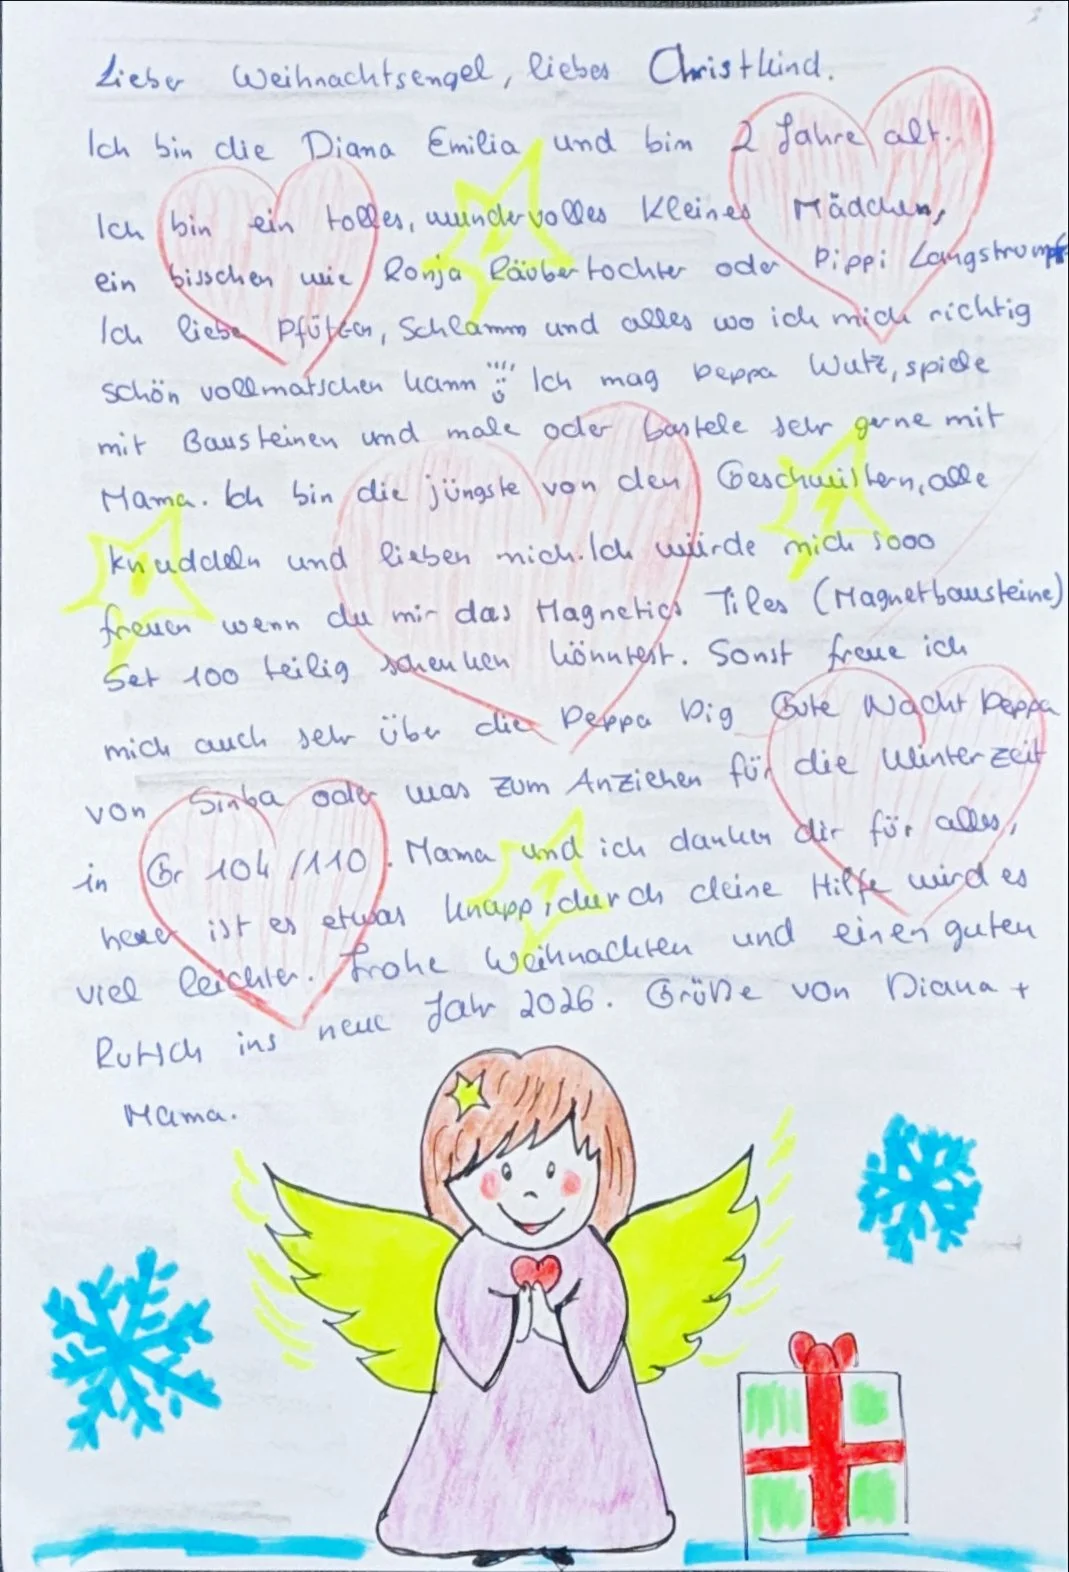 Lieber Weihnachtsengel, liebes Christkind.
Ich bin die Diana Emilia und bin 2 Jahre alt.
Ich bin ein tolles, wundervolles kleines Mädchen,
ein bisschen wie Ronja Räubertochter oder Pippi Langstrumpf
Ich liebe Pfützen, Schlamm und alles wo ich mich richtig
schön vollmatschen kann Ich mag Peppa Wutz, spiele
mit Bausteinen und male oder bastele sehr gerne mit
Mama. Ich bin die jüngste von den Geschwistern, alle
knuddeln und lieben mich. Ich würde mich sooo
freuen wenn du mir das Magnetics Tiles (Magnetbausteine)
Set 100 teilig schenken könntest. Sonst freue ich
mich auch sehr über die Peppa Pig Gute Nacht Peppa
von Simba oder was zum Anziehen für die Winterzeit
in Gr 104/110. Mama und ich danken dir für alles,
heuer ist es etwas knapp, durch deine Hilfe wird es
viel leichter. Frohe Weihnachten und einen guten
Rutsch ins neue Jahr 2026. Grüße von Diana +
Mama.